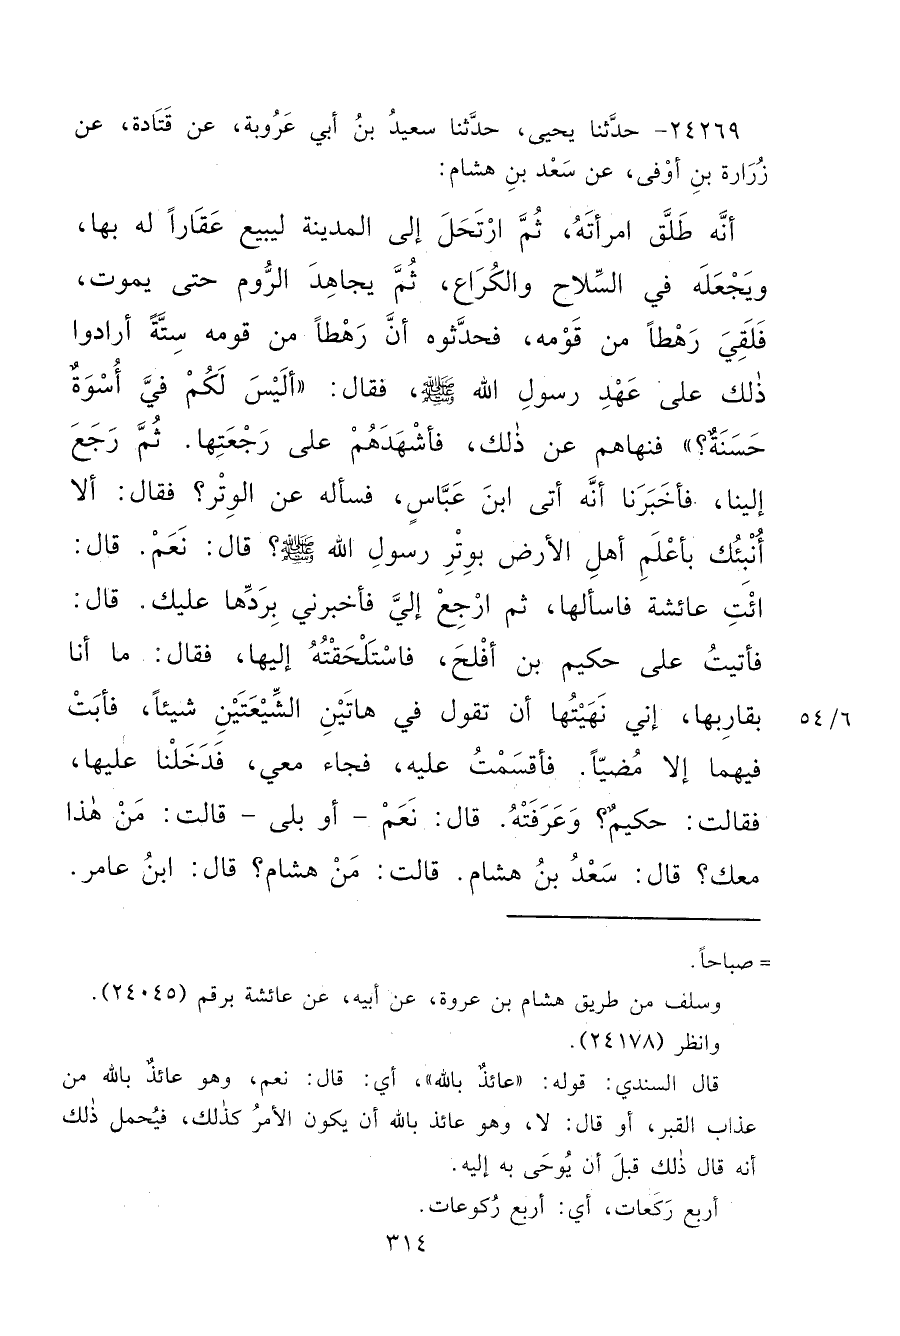 ٢٤٢٦٩- حدَّثنا يحيى، حدَّثنا سعيدُ بنُ أبي عَرُوبة، عن قَتَادة، عن
زُرَارة بنِ أوْفى، عن سَعْد بنِ هشام:
أنَّه طَلَّق امرأتَهُ، ثُمَّ ارْتَحَلَ إلى المدينة ليبيع عَقَاراً له بها،
ويَجْعَلَه في السِّلاح والكُرَاع، ثُمَّ يجاهِدَ الرُّوم حتى يموت،
فَلَقِيَ رَهْطاً من قَوْمه، فحدَّثوه أنَّ رَهْطاً من قومه سِتَّةً أرادوا
ذٰلك على عَهْدِ رسولِ الله ﷺ، فقال: «أَلَيْسَ لَكُمْ فيَّ أُسْوَةٌ
حَسَنَةٌ؟» فنهاهم عن ذٰلك، فأشْهَدَهُمْ على رَجْعَتِها. ثُمَّ رَجَعَ
إلينا، فأخبَرَنا أنَّه أتى ابنَ عَبَّاسٍ، فسأله عن الوِتْر؟ فقال: ألا
أُنْبِئُك بأعْلَمِ أهلِ الأرض بوِتْرِ رسولِ الله ﷺ؟ قال: نَعَمْ. قال:
ائْتِ عائشة فاسألها، ثم ارْجِعْ إليَّ فأخبرني بِرَدِّها عليك. قال:
فأتيتُ على حكيم بن أفْلحَ، فاسْتَلْحَقْتُهُ إليها، فقال: ما أنا
بقارِبها، إني نَهَيْتُها أن تقول في هاتَيْنِ الشِّيْعَتَيْنِ شيئاً، فأبَتْ ٥٤/٦
فيهما إلا مُضيّاً. فأقسَمْتُ عليه، فجاء معي، فَدَخَلْنا عليها،
فقالت: حكيمٌ؟ وَعَرَفَتْهُ. قال: نَعَمْ - أو بلى - قالت: مَنْ هٰذا
معك؟ قال: سَعْدُ بنُ هشام. قالت: مَنْ هشام؟ قال: ابنُ عامر.
= صباحاً.
وسلف من طريق هشام بن عروة، عن أبيه، عن عائشة برقم (٢٤٠٤٥).
وانظر (٢٤١٧٨).
قال السندي: قوله: «عائذٌ بالله»، أي: قال: نعم، وهو عائذٌ بالله من
عذاب القبر، أو قال: لا، وهو عائذ بالله أن يكون الأمرُ كذٰلك، فيُحمل ذٰلك
أنه قال ذٰلك قبلَ أن يُوحَى به إليه.
أربع رَكَعات، أي: أربع رُكوعات.
٣١٤